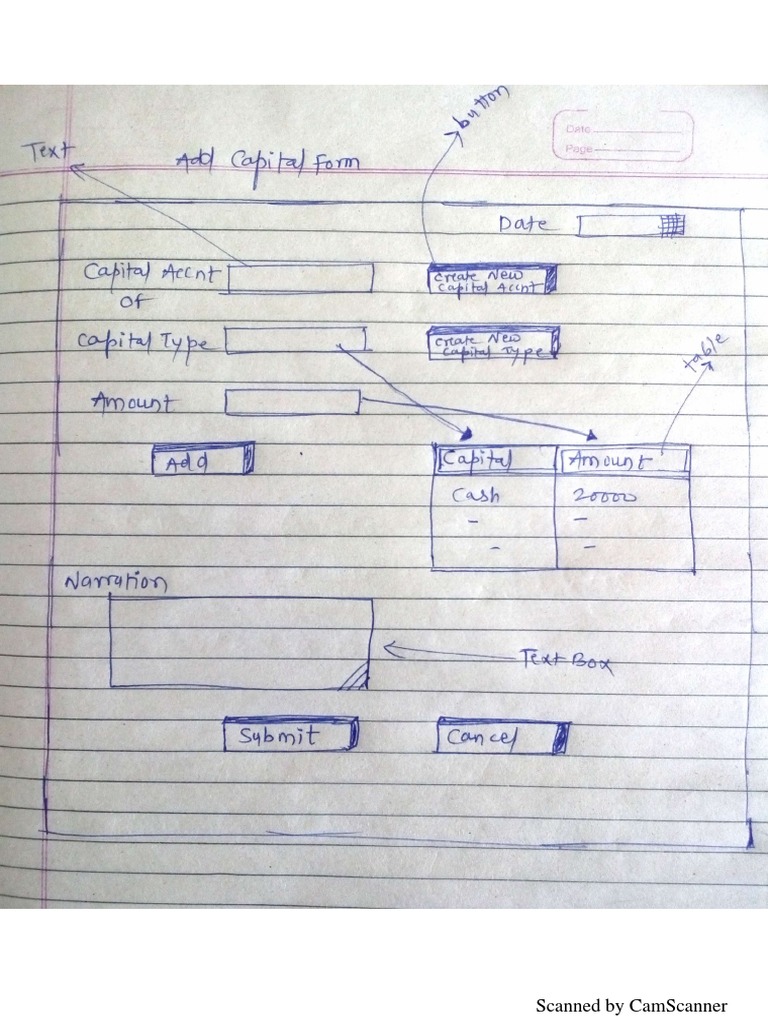 button
Date
Page
Text
Add Capital Form
Date
Capital Accnt
of
Create New
Capital Accnt
Capital Type
Create New
Capital Type
table
Amount
Add
Capital Amount
Cash 20000
- -
- -
Narration
Text Box
Submit Cancel
Scanned by CamScanner